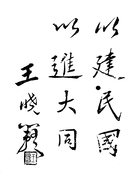 以建民國
以進大同
王曉籟